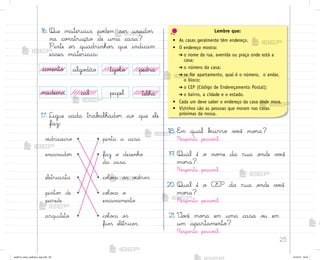 16. Que materiais podem ser usados
na construção de uma casa?
Pinte os quadrinhos que indicam
esses materiais:
cimento algodão tijolo pedra
madeira cal papel telha
17. Ligue cada trabalhador ao que ele
faz:
vidraceiro • • pinta a casa
encanador • • faz o desenho
da casa
eletricista • • coloca os vidros
pintor de
parede • • coloca o
encanamento
arquiteto • • coloca os
fios elétricos
Lembre que:
• As casas geralmente têm endereço.
• O endereço mostra:
➜ o nome da rua, avenida ou praça onde está a
casa;
➜ o número da casa;
➜ se for apartamento, qual é o número, o andar,
o bloco;
➜ o CEP (Código de Endereçamento Postal);
➜ o bairro, a cidade e o estado.
• Cada um deve saber o endereço da casa onde mora.
• Vizinhos são as pessoas que moram nas casas
próximas da nossa.
18. Em qual bairro você mora?
Resposta pessoal.
19. Qual é o nome da rua onde você
mora?
Resposta pessoal.
20. Qual é o CEP da rua onde você
mora?
Resposta pessoal.
21. Você mora em uma casa ou em
um apartamento?
Resposta pessoal.
25